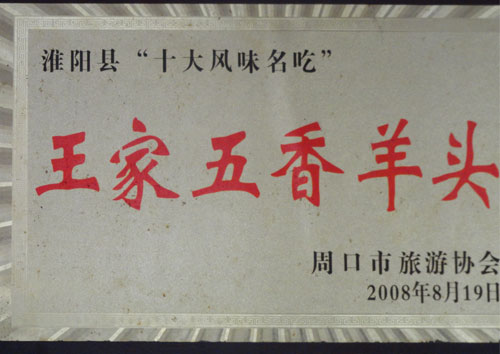 淮阳县“十大风味名吃”
王家五香羊头
周口市旅游协会
2008年8月19日